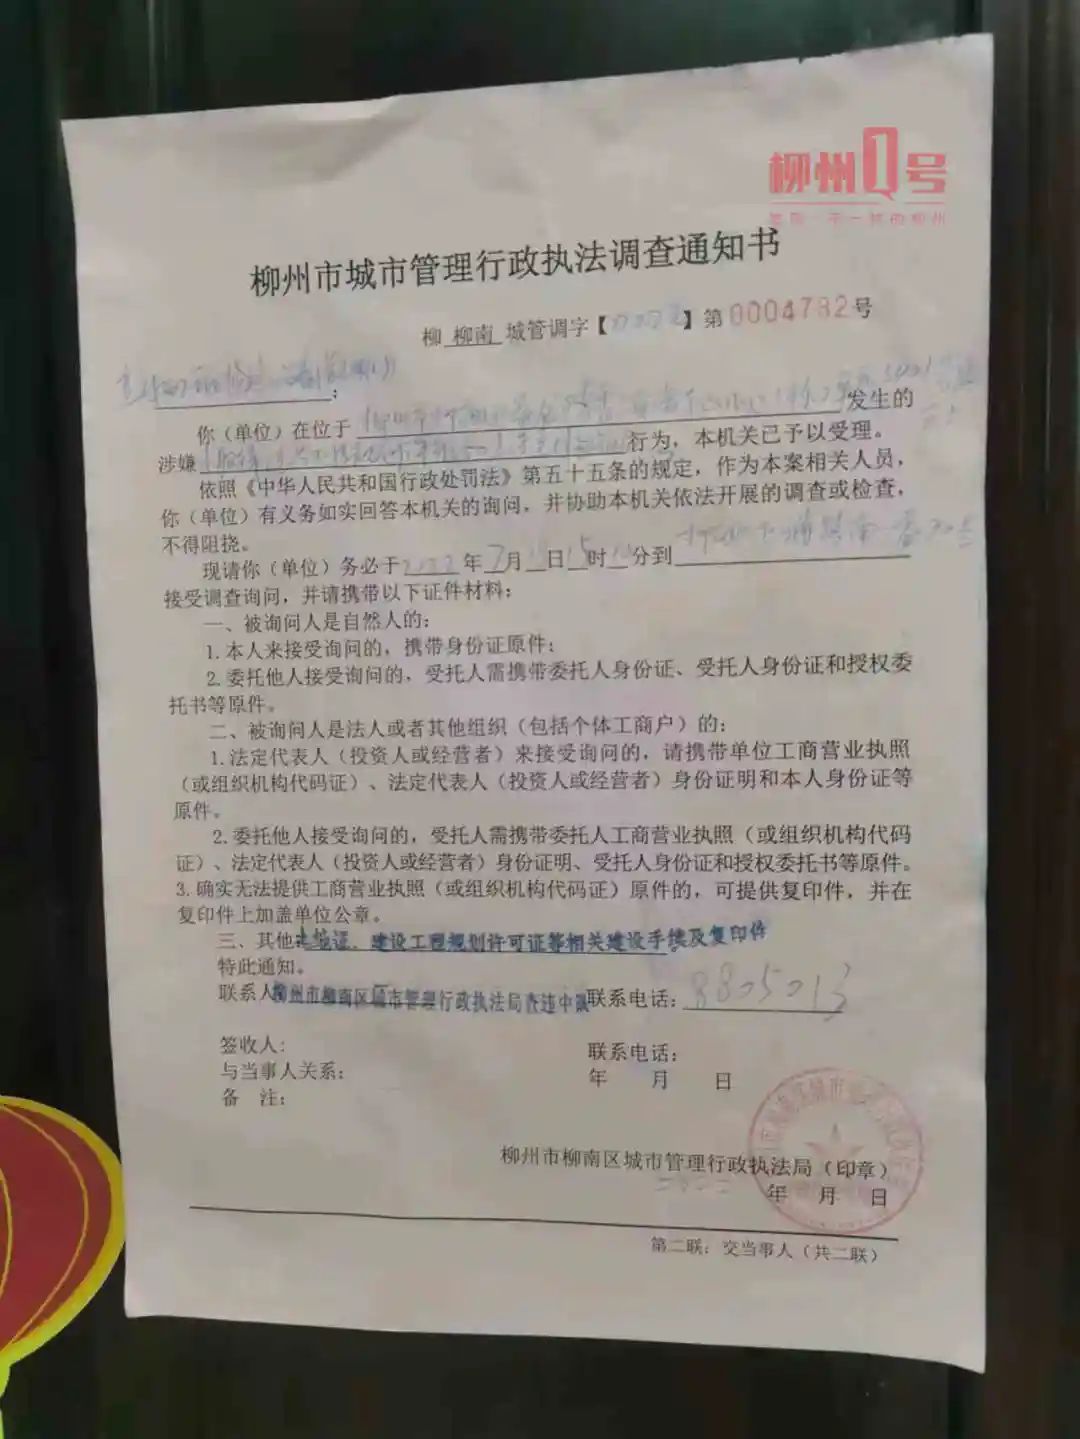 柳州Q号
柳州市城市管理行政执法调查通知书
柳 柳南 城管调字【2022】第0004782号
你（单位）在位于 发生的
涉嫌 行为，本机关已予以受理。
依照《中华人民共和国行政处罚法》第五十五条的规定，作为本案相关人员，
你（单位）有义务如实回答本机关的询问，并协助本机关依法开展的调查或检查，
不得阻挠。
现请你（单位）务必于2022年7月 日15时 分到
接受调查询问，并请携带以下证件材料：
一、被询问人是自然人的：
1.本人来接受询问的，携带身份证原件；
2.委托他人接受询问的，受托人需携带委托人身份证、受托人身份证和授权委
托书等原件。
二、被询问人是法人或者其他组织（包括个体工商户）的：
1.法定代表人（投资人或经营者）来接受询问的，请携带单位工商营业执照
（或组织机构代码证）、法定代表人（投资人或经营者）身份证明和本人身份证等
原件。
2.委托他人接受询问的，受托人需携带委托人工商营业执照（或组织机构代码
证）、法定代表人（投资人或经营者）身份证明、受托人身份证和授权委托书等原件。
3.确实无法提供工商营业执照（或组织机构代码证）原件的，可提供复印件，并在
复印件上加盖单位公章。
三、其他土地证、建设工程规划许可证等相关建设手续及复印件
特此通知。
联系人柳州市柳南区城市管理行政执法局查违中队联系电话：8805013
签收人： 联系电话：
与当事人关系： 年 月 日
备 注：
柳州市柳南区城市管理行政执法局（印章）
年 月 日
第二联：交当事人（共二联）